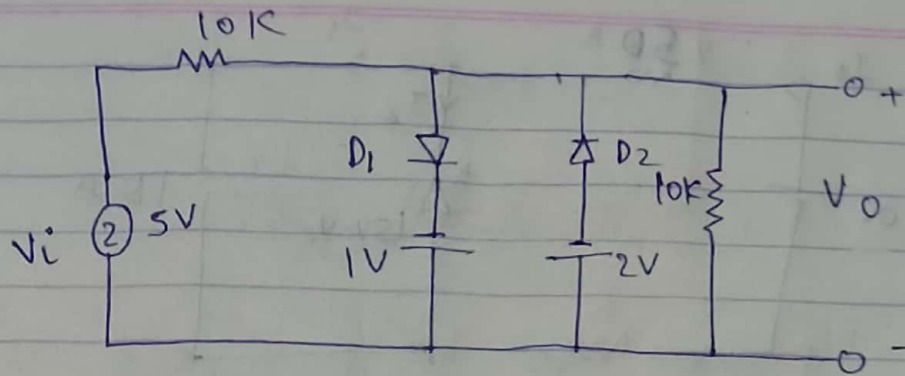 10K
D1
D2
10K
Vo
+
Vi
5V
1V
2V
-